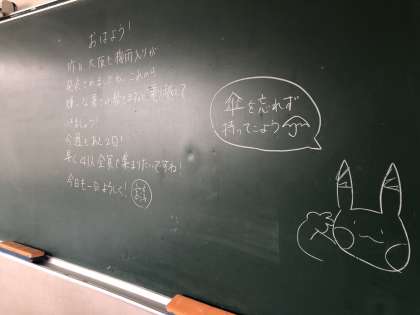 おはよう!
昨日、大阪も梅雨入りが
発表されましたね。これから
嫌な
ましょう!
今週もあと2日!
早く41人全員で集まりたいですね!
今日も一日よろしく!
傘を忘れず
持ってこよう